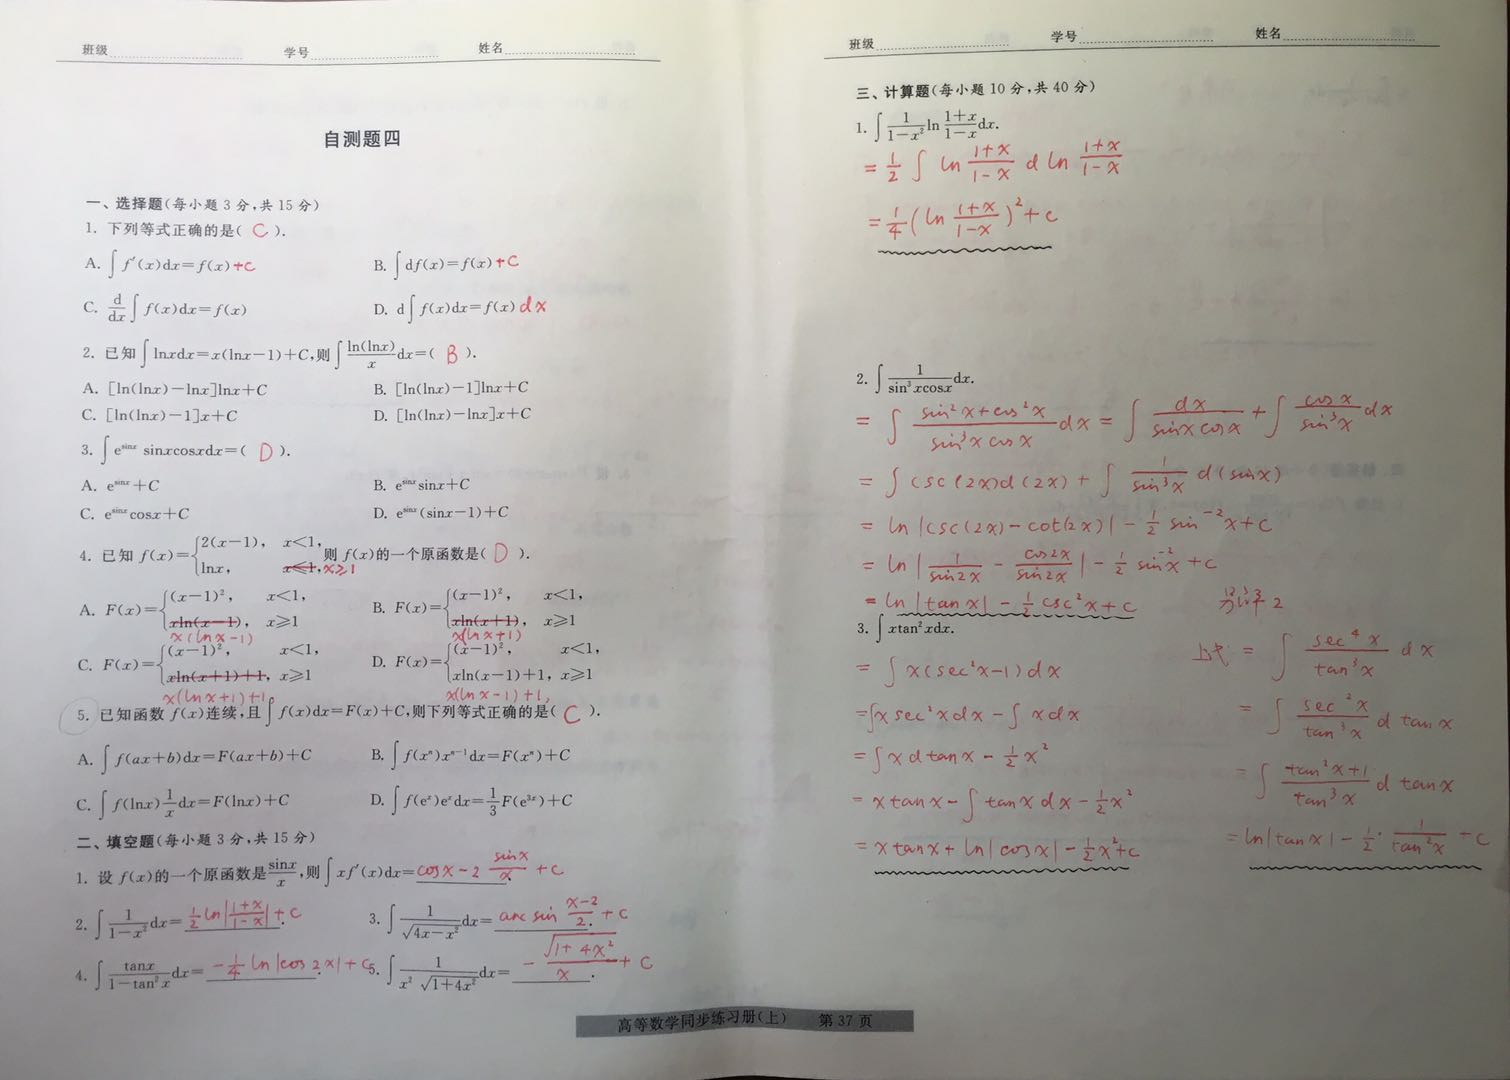 班级 学号 姓名
自测题四
一、选择题(每小题3分,共15分)
1. 下列等式正确的是( C ).
A. ∫f′(x)dx=f(x)+c B. ∫df(x)=f(x)+C
C. d/dx ∫f(x)dx=f(x) D. d∫f(x)dx=f(x)dx
2. 已知∫lnxdx=x(lnx-1)+C,则∫ln(lnx)/x dx=( B ).
A. [ln(lnx)-lnx]lnx+C B. [ln(lnx)-1]lnx+C
C. [ln(lnx)-1]x+C D. [ln(lnx)-lnx]x+C
3. ∫e^sinx sinxcosxdx=( D ).
A. e^sinx+C B. e^sinx sinx+C
C. e^sinx cosx+C D. e^sinx(sinx-1)+C
4. 已知 f(x)={2(x-1), x<1, lnx, x≤1, x≥1 则 f(x)的一个原函数是( D ).
A. F(x)={(x-1)², x<1, xln(x-1), x≥1 B. F(x)={(x-1)², x<1, xln(x+1), x≥1
x(lnx-1) x(lnx+1)
C. F(x)={(x-1)², x<1, xln(x+1)+1, x≥1 D. F(x)={(x-1)², x<1, xln(x-1)+1, x≥1
x(lnx+1)+1 x(lnx-1)+1,
5. 已知函数 f(x)连续,且∫f(x)dx=F(x)+C,则下列等式正确的是( C ).
A. ∫f(ax+b)dx=F(ax+b)+C B. ∫f(xⁿ)xⁿ⁻¹dx=F(xⁿ)+C
C. ∫f(lnx)1/x dx=F(lnx)+C D. ∫f(eˣ)eˣdx=1/3 F(e³ˣ)+C
二、填空题(每小题3分,共15分)
1. 设 f(x)的一个原函数是sinx/x,则∫xf′(x)dx=cosx-2 sinx/x+C.
2. ∫1/(1-x²)dx=1/2 ln|(1+x)/(1-x)|+C. 3. ∫1/√(4x-x²)dx=arcsin (x-2)/2+C.
4. ∫tanx/(1-tan²x)dx=-1/4 ln|cos2x|+C. 5. ∫1/(x²√(1+4x²))dx=-√(1+4x²)/x+C.
高等数学同步练习册(上) 第37页
班级 学号 姓名
三、计算题(每小题10分,共40分)
1. ∫1/(1-x²) ln (1+x)/(1-x) dx.
=1/2 ∫ln (1+x)/(1-x) d ln (1+x)/(1-x)
=1/4 (ln (1+x)/(1-x))²+C
2. ∫1/(sin³xcosx)dx.
=∫(sin²x+cos²x)/(sin³x cosx) dx=∫dx/(sinx cosx)+∫cosx/sin³x dx
=∫csc(2x)d(2x)+∫1/sin³x d(sinx)
=ln|csc(2x)-cot(2x)|-1/2 sin⁻²x+C
=ln|1/sin2x-cos2x/sin2x|-1/2 sin⁻²x+C
=ln|tanx|-1/2 csc²x+C
3. ∫xtan²xdx.
=∫x(sec²x-1)dx
=∫x sec²xdx-∫xdx
=∫xd tanx-1/2 x²
=xtanx-∫tanxdx-1/2 x²
=xtanx+ln|cosx|-1/2 x²+C
2
上式=∫sec⁴x/tan³x dx
=∫sec²x/tan³x d tanx
=∫(tan²x+1)/tan³x d tanx
=ln|tanx|-1/2·1/tan²x+C